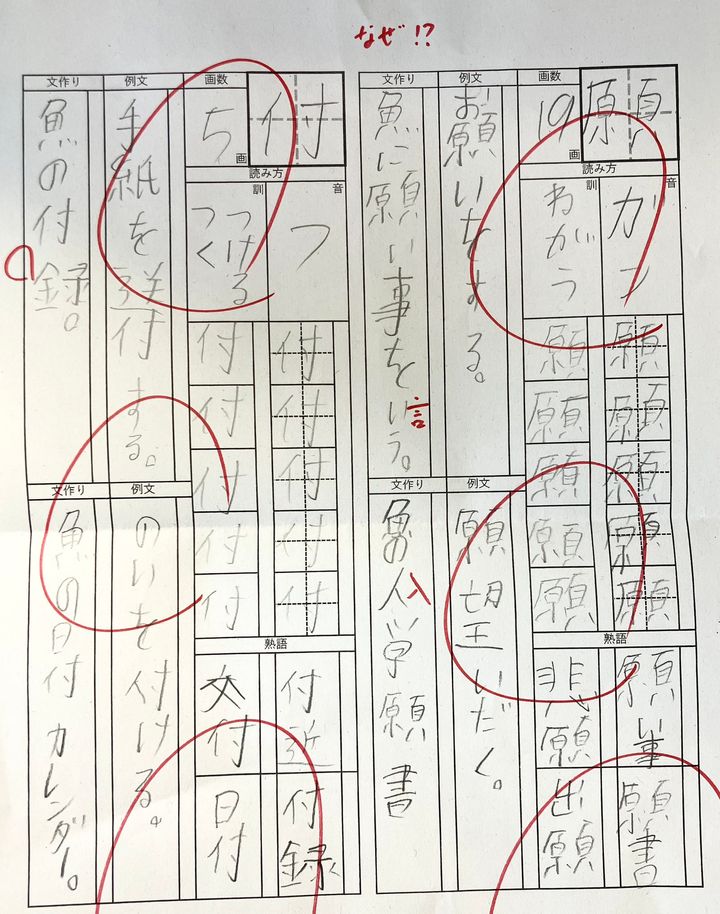 なぜ!?
願
音
ガン
訓
ねがう
読み方
画数
19
画
願
願
願
願
願
願
願
願
願
願
熟語
願い事
願書
悲願
出願
例文
お願いをする。
文作り
魚に願い事をいう。
言
例文
文作り
魚の入学願書
付
音
フ
訓
つける
つく
読み方
画数
5
画
付
付
付
付
付
付
付
付
付
付
熟語
付近
付録
交付
日付
例文
手紙を送付する。
文作り
魚の付録。
例文
のりを付ける。
文作り
魚の日付カレンダー。